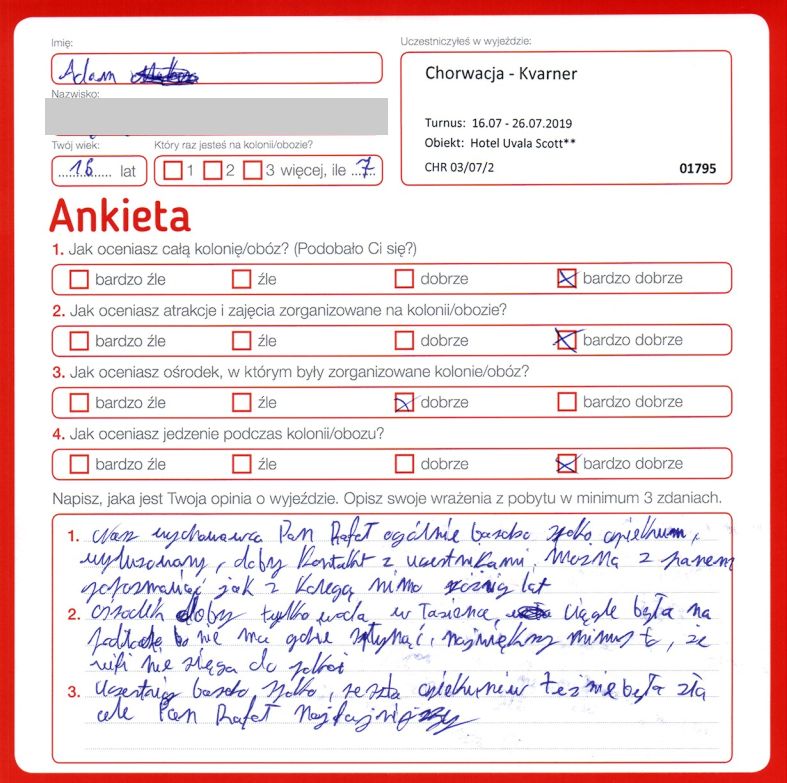 Imię:
Adam
Nazwisko:
Twój wiek:
16 lat
Który raz jesteś na kolonii/obozie?
1 2 3 więcej, ile 7
Uczestniczyłeś w wyjeździe:
Chorwacja - Kvarner
Turnus: 16.07 - 26.07.2019
Obiekt: Hotel Uvala Scott**
CHR 03/07/2 01795
Ankieta
1. Jak oceniasz całą kolonię/obóz? (Podobało Ci się?)
bardzo źle źle dobrze bardzo dobrze
2. Jak oceniasz atrakcje i zajęcia zorganizowane na kolonii/obozie?
bardzo źle źle dobrze bardzo dobrze
3. Jak oceniasz ośrodek, w którym były zorganizowane kolonie/obóz?
bardzo źle źle dobrze bardzo dobrze
4. Jak oceniasz jedzenie podczas kolonii/obozu?
bardzo źle źle dobrze bardzo dobrze
Napisz, jaka jest Twoja opinia o wyjeździe. Opisz swoje wrażenia z pobytu w minimum 3 zdaniach.
1. Nasz wychowawca Pan Rafał ogólnie bardzo spoko opiekun,
wyluzowany, doby kontakt z uczestnikami, można z panem
jak z kolegą mimo różnicy lat
2. Ośrodek doby tylko woda w łazience, ciągle była na
podłodze bo nie ma gdzie spłynąć, największy minus to, że
wifi nie sięga do pokoi
3. Uczestnicy bardzo spoko, reszta opiekunów też nie była zła
ale Pan Rafał najfajniejszy